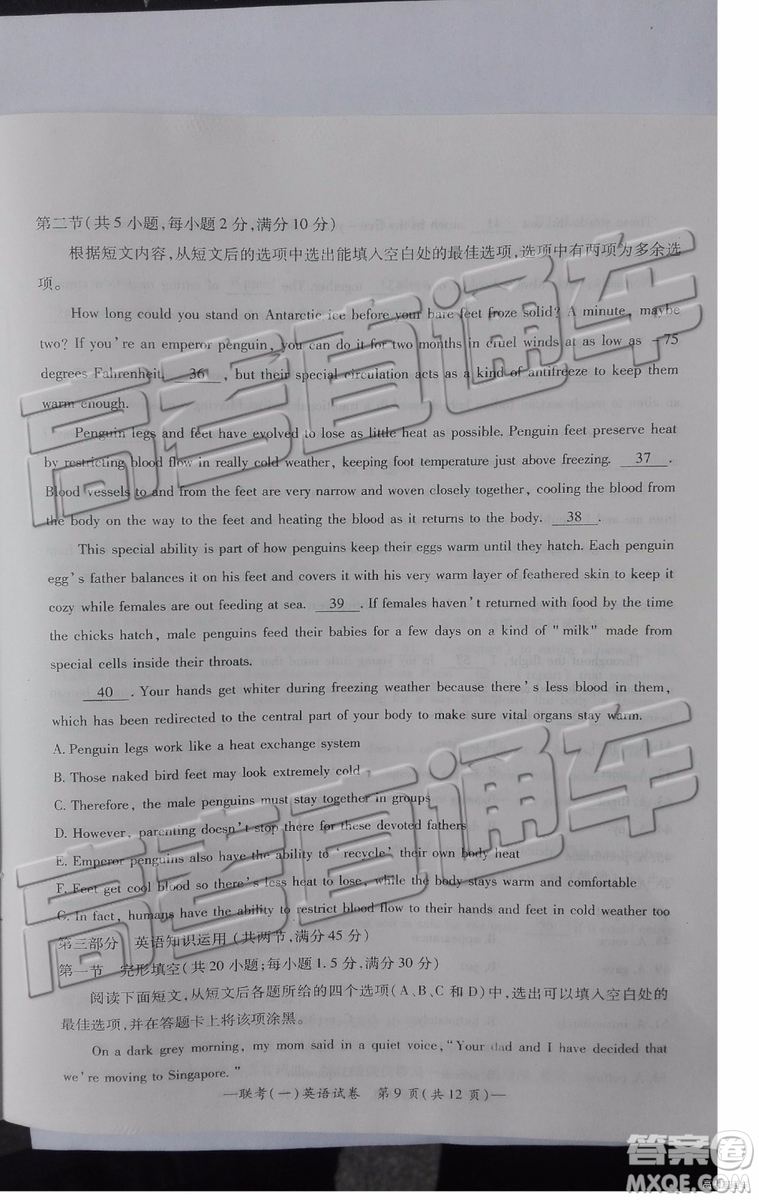 第二节(共5小题,每小题2分,满分10分)
根据短文内容,从短文后的选项中选出能填入空白处的最佳选项,选项中有两项为多余选
项。
How long could you stand on Antarctic ice before your bare feet froze solid? A minute, maybe
two? If you're an emperor penguin, you can do it for two months in cruel winds at as low as -75
degrees Fahrenheit. 36 , but their special circulation acts as a kind of antifreeze to keep them
warm enough.
Penguin legs and feet have evolved to lose as little heat as possible. Penguin feet preserve heat
by restricting blood flow in really cold weather, keeping foot temperature just above freezing. 37 .
Blood vessels to and from the feet are very narrow and woven closely together, cooling the blood from
the body on the way to the feet and heating the blood as it returns to the body. 38 .
This special ability is part of how penguins keep their eggs warm until they hatch. Each penguin
egg's father balances it on his feet and covers it with very warm layer of feathered skin to keep it
cozy while females are out feeding at sea. 39 . If females haven't returned with food by the time
the chicks hatch, male penguins feed their babies for a few days on a kind of "milk" made from
special cells inside their throats.
40 . Your hands get whiter during freezing weather because there's less blood in them,
which has been redirected to the central part of your body to make sure vital organs stay warm.
A. Penguin legs work like a heat exchange system
B. Those naked bird feet may look extremely cold
C. Therefore, the male penguins must stay together in groups
D. However, parenting doesn't stop there for these devoted fathers
E. Emperor penguins also have the ability to 'recycle' their own body heat
F. Feet get cool blood so there's less heat to lose, while the body stays warm and comfortable
G. In fact, humans have the ability to restrict blood flow to their hands and feet in cold weather too
第三部分 英语知识运用(共两节,满分45分)
第一节 完形填空(共20小题;每小题1.5分,满分30分)
阅读下面短文,从短文后各题所给的四个选项(A、B、C和D)中,选出可以填入空白处的
最佳选项,并在答题卡上将该项涂黑。
On a dark grey morning, my mom said in a quiet voice, "Your dad and I have decided that
we're moving to Singapore."
—联考(一)英语试卷 第9页(共12页)—
高考直通车
高考直通车
答案圈
MXQE.COM